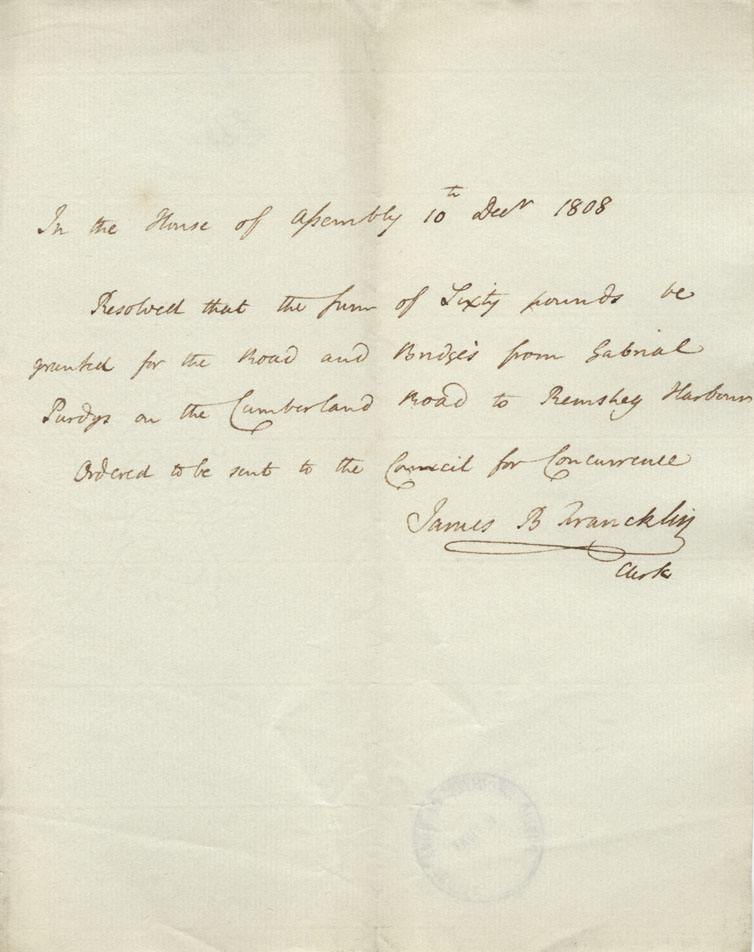 In the House of Assembly 10th Decr 1808
Resolved that the sum of Sixty pounds be
granted for the Road and Bridges from Gabrial
Purdys on the Cumberland Road to Remsheg Harbour
Ordered to be sent to the Council for Concurrence
James B Francklin
Clerk